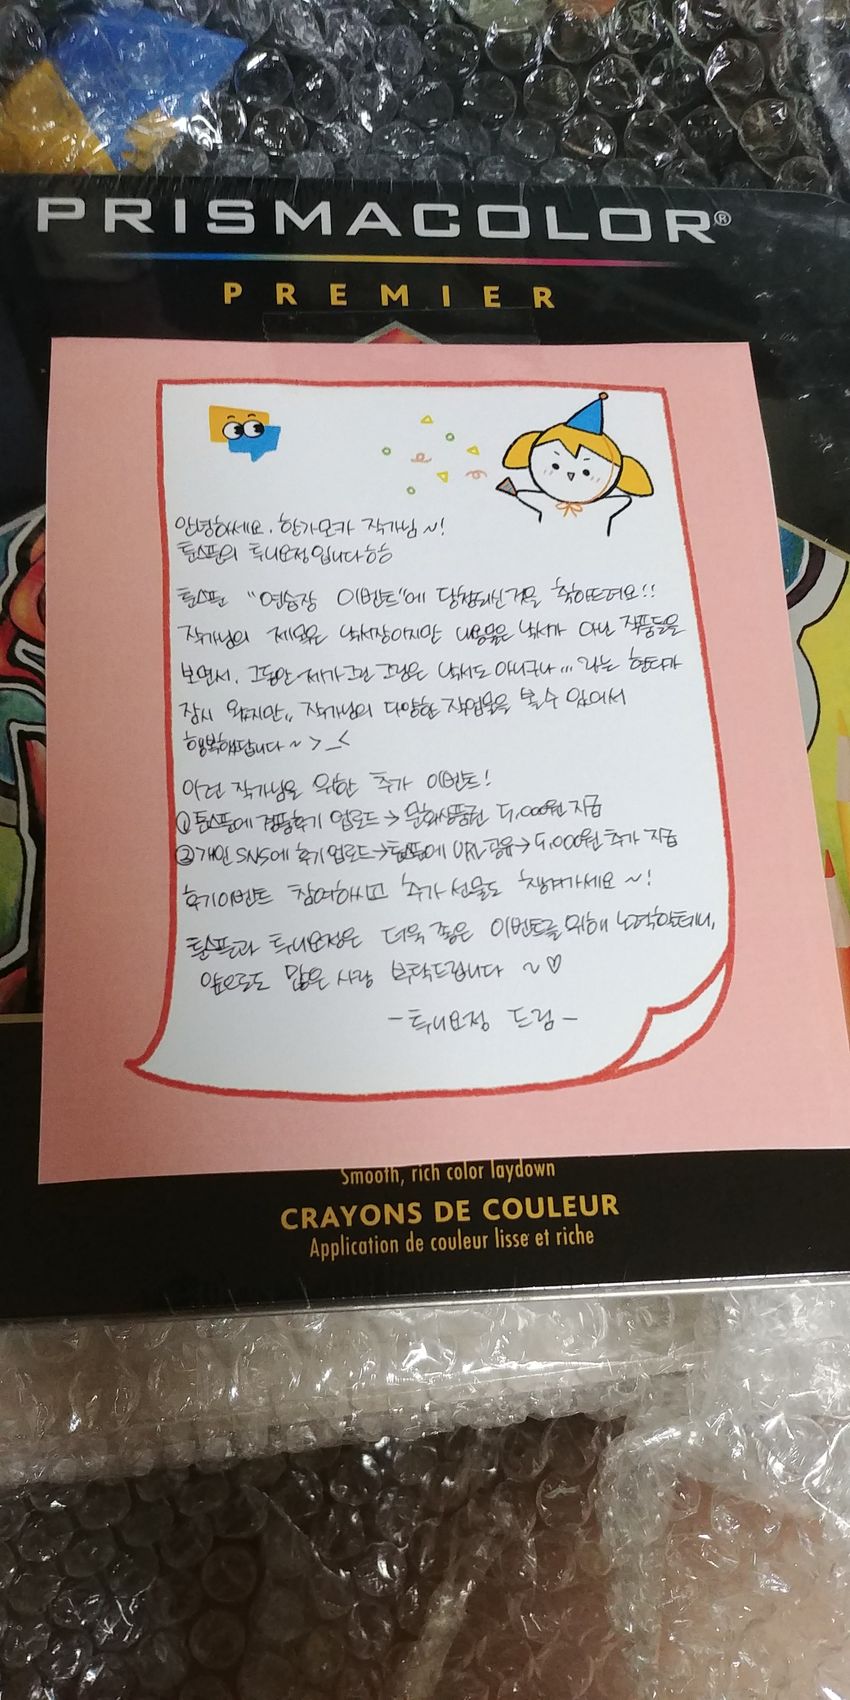 PRISMACOLOR®
PREMIER
안녕하세요. 한가모카 작가님~!
툰스푼의 투니요정입니다ㅎㅎ
툰스푼 "연습장 이벤트"에 당첨되신것을 축하드려요!!
작가님의 제목은 낙서장이지만 내용물은 낙서가 아닌 작품들을
보면서, 그동안 제가 그린 그림은 낙서도 아니구나... 라는 현타가
잠시 왔지만,, 작가님의 다양한 작업물을 볼 수 있어서
행복했답니다~ >_<
이런 작가님을 위한 추가 이벤트!
① 툰스푼에 경품후기 업로드 → 문화상품권 5,000원 지급
② 개인 SNS에 후기 업로드 → 툰스푼에 URL 공유 → 5,000원 추가 지급
후기이벤트 참여하시고 추가 선물도 챙겨가세요~!
툰스푼과 투니요정은 더욱 좋은 이벤트를 위해 노력할테니,
앞으로도 많은 사랑 부탁드립니다 ~♡
- 투니요정 드림 -
Smooth, rich color laydown
CRAYONS DE COULEUR
Application de couleur lisse et riche